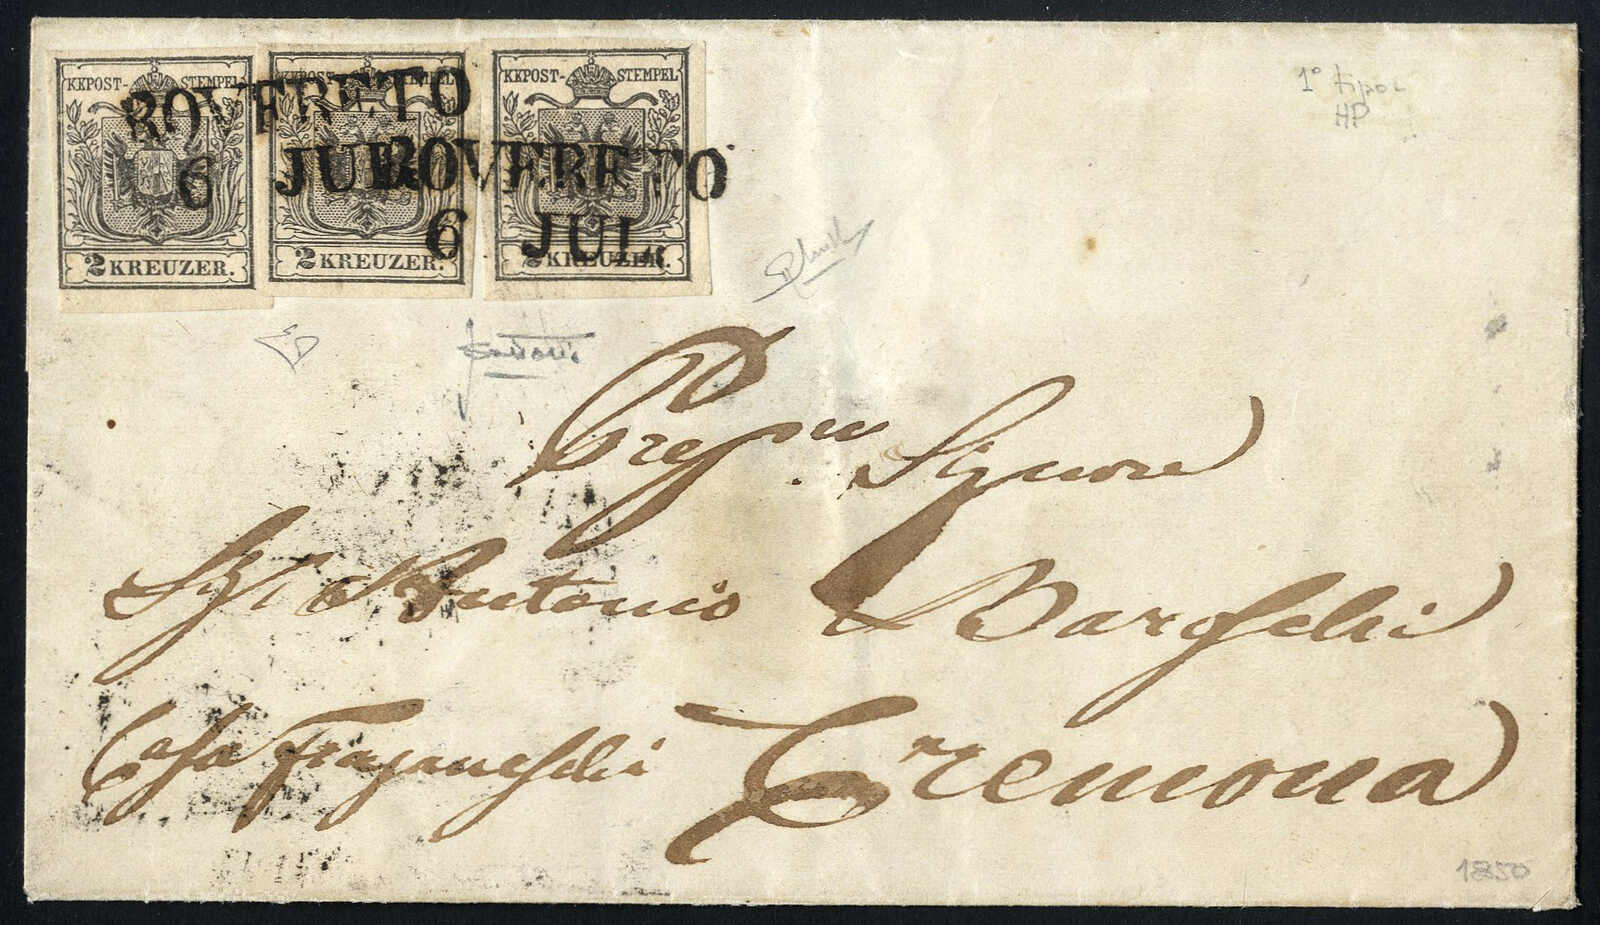 KKPOST-STEMPEL KKPOST-STEMPEL KKPOST-STEMPEL
ROVERETO
6 JUL
ROVERETO
6 JUL
2 KREUZER. 2 KREUZER. 2 KREUZER.
1° tipo
HP
Preg.mo Signore
Antonio Barofelsi
Casa Cremona
1850